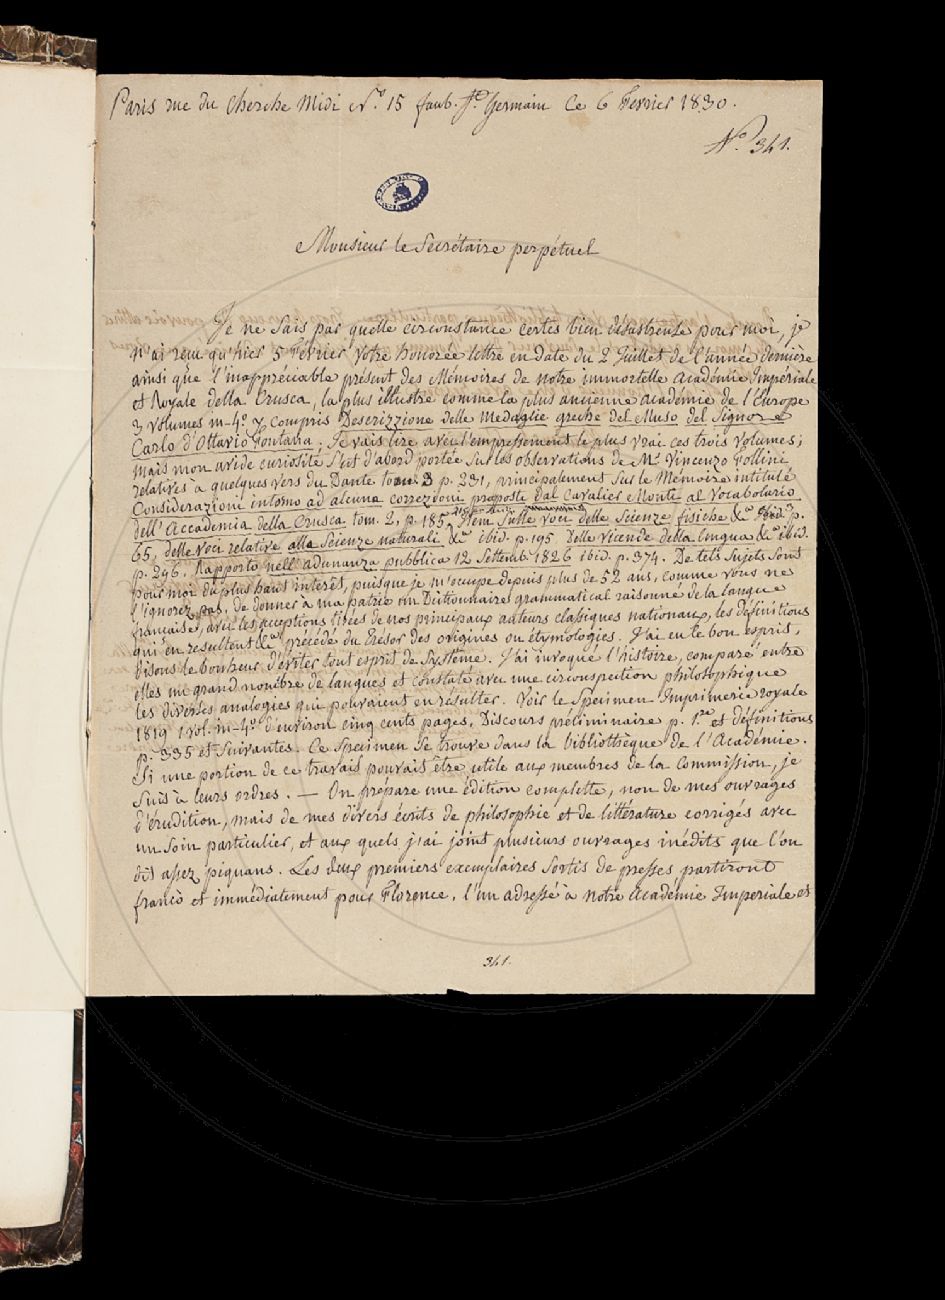 Paris rue du Cherche Midi N.o 15 faub. St. Germain Ce 6 Fevrier 1830.
N.o 341.
Monsieur le Secrétaire perpétuel
Je ne sais par quelle circonstance certes bien désastreuse pour moi, je
n'ai reçu qu'hier 5 Fevrier votre honorée lettre en date du 2 Juillet de l'année dernière
ainsi que l'inappréciable présent des Mémoires de notre immortelle Académie Impériale
et Royale della Crusca, la plus illustre comme la plus ancienne académie de l'Europe
3 volumes in-4.o y compris Descrizzione delle Medaglie greche del Museo del Signor
Carlo d'Ottavio Fontana. Je vais lire avec l'empressement le plus vrai ces trois volumes;
mais mon avide curiosité s'est d'abord portée sur les observations de Mr. Vincenzo Follini
relatives à quelques vers du Dante tom. 3 p. 231, principalement sur le Mémoire intitulé
Considerazioni intorno ad alcune correzzioni proposte dal Cavalier Monti al Vocabolario
dell'Accademia della Crusca tom. 2, p. 185, Item Sulle voci delle Scienze fisiche &a ibid. p.
65, delle voci relative alla Scienze naturali &a ibid. p. 195 Delle vicende della lingua &a ibid.
p. 246. Rapporto nell'adunanza pubblica 12 Settemb. 1826 ibid. p. 374. De tels sujets sont
pour moi du plus haut interêt, puisque je m'occupe depuis plus de 52 ans, comme vous ne
l'ignorez pas, de donner à ma patrie un Dictionnaire grammatical raisonné de la langue
française, avec les acceptions tirées de nos principaux auteurs classiques nationaux, les définitions
qui en resultent &a, précédé du Trésor des origines ou étymologies. J'ai eu le bon esprit,
disons le bonheur d'éviter tout esprit de système. J'ai invoqué l'histoire, comparé entre
elles un grand nombre de langues et constaté avec une circonspection philosophique
les diverses analogies qui pouvaient en résulter. Voir le Specimen Imprimerie royale
1819 1 vol. in-4.o d'environ cinq cents pages, Discours préliminaire p. 1.re et définitions
p. 335 et suivantes. Ce Specimen se trouve dans la bibliothèque de l'Académie.
Si une portion de ce travail pouvait être utile aux membres de la Commission, je
suis à leurs ordres. — On prépare une édition complette, non de mes ouvrages
d'érudition, mais de mes divers écrits de philosophie et de littérature corrigés avec
un soin particulier, et aux quels j'ai joint plusieurs ouvrages inédits que l'on
dit assez piquans. Les deux premiers exemplaires sortis de presses partiront
franco et immédiatement pour Florence, l'un adressé à notre Académie Imperiale et
341.